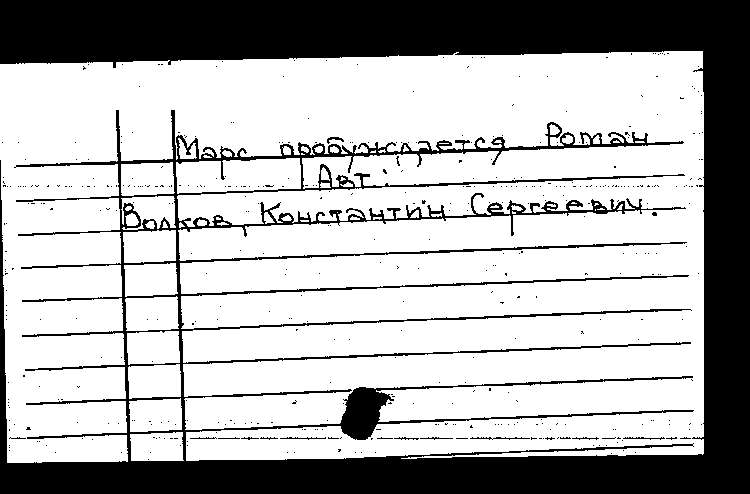 Марс пробуждается Роман
Авт:
Волков, Константин Сергеевич.